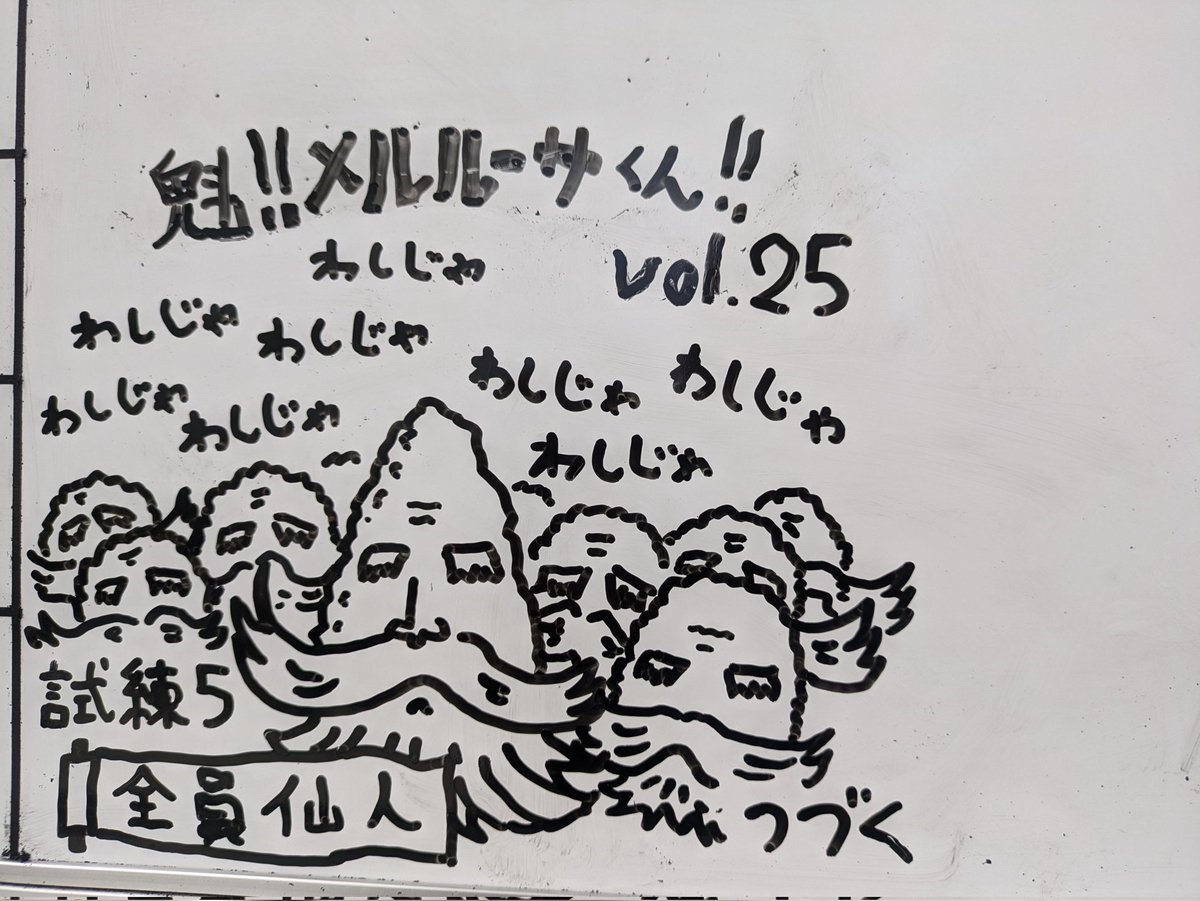 魁!!メルルーサくん!!
vol.25
わしじゃ
わしじゃ
わしじゃ
わしじゃ
わしじゃ
わしじゃ
わしじゃ
わしじゃ
試練5
全員仙人
つづく